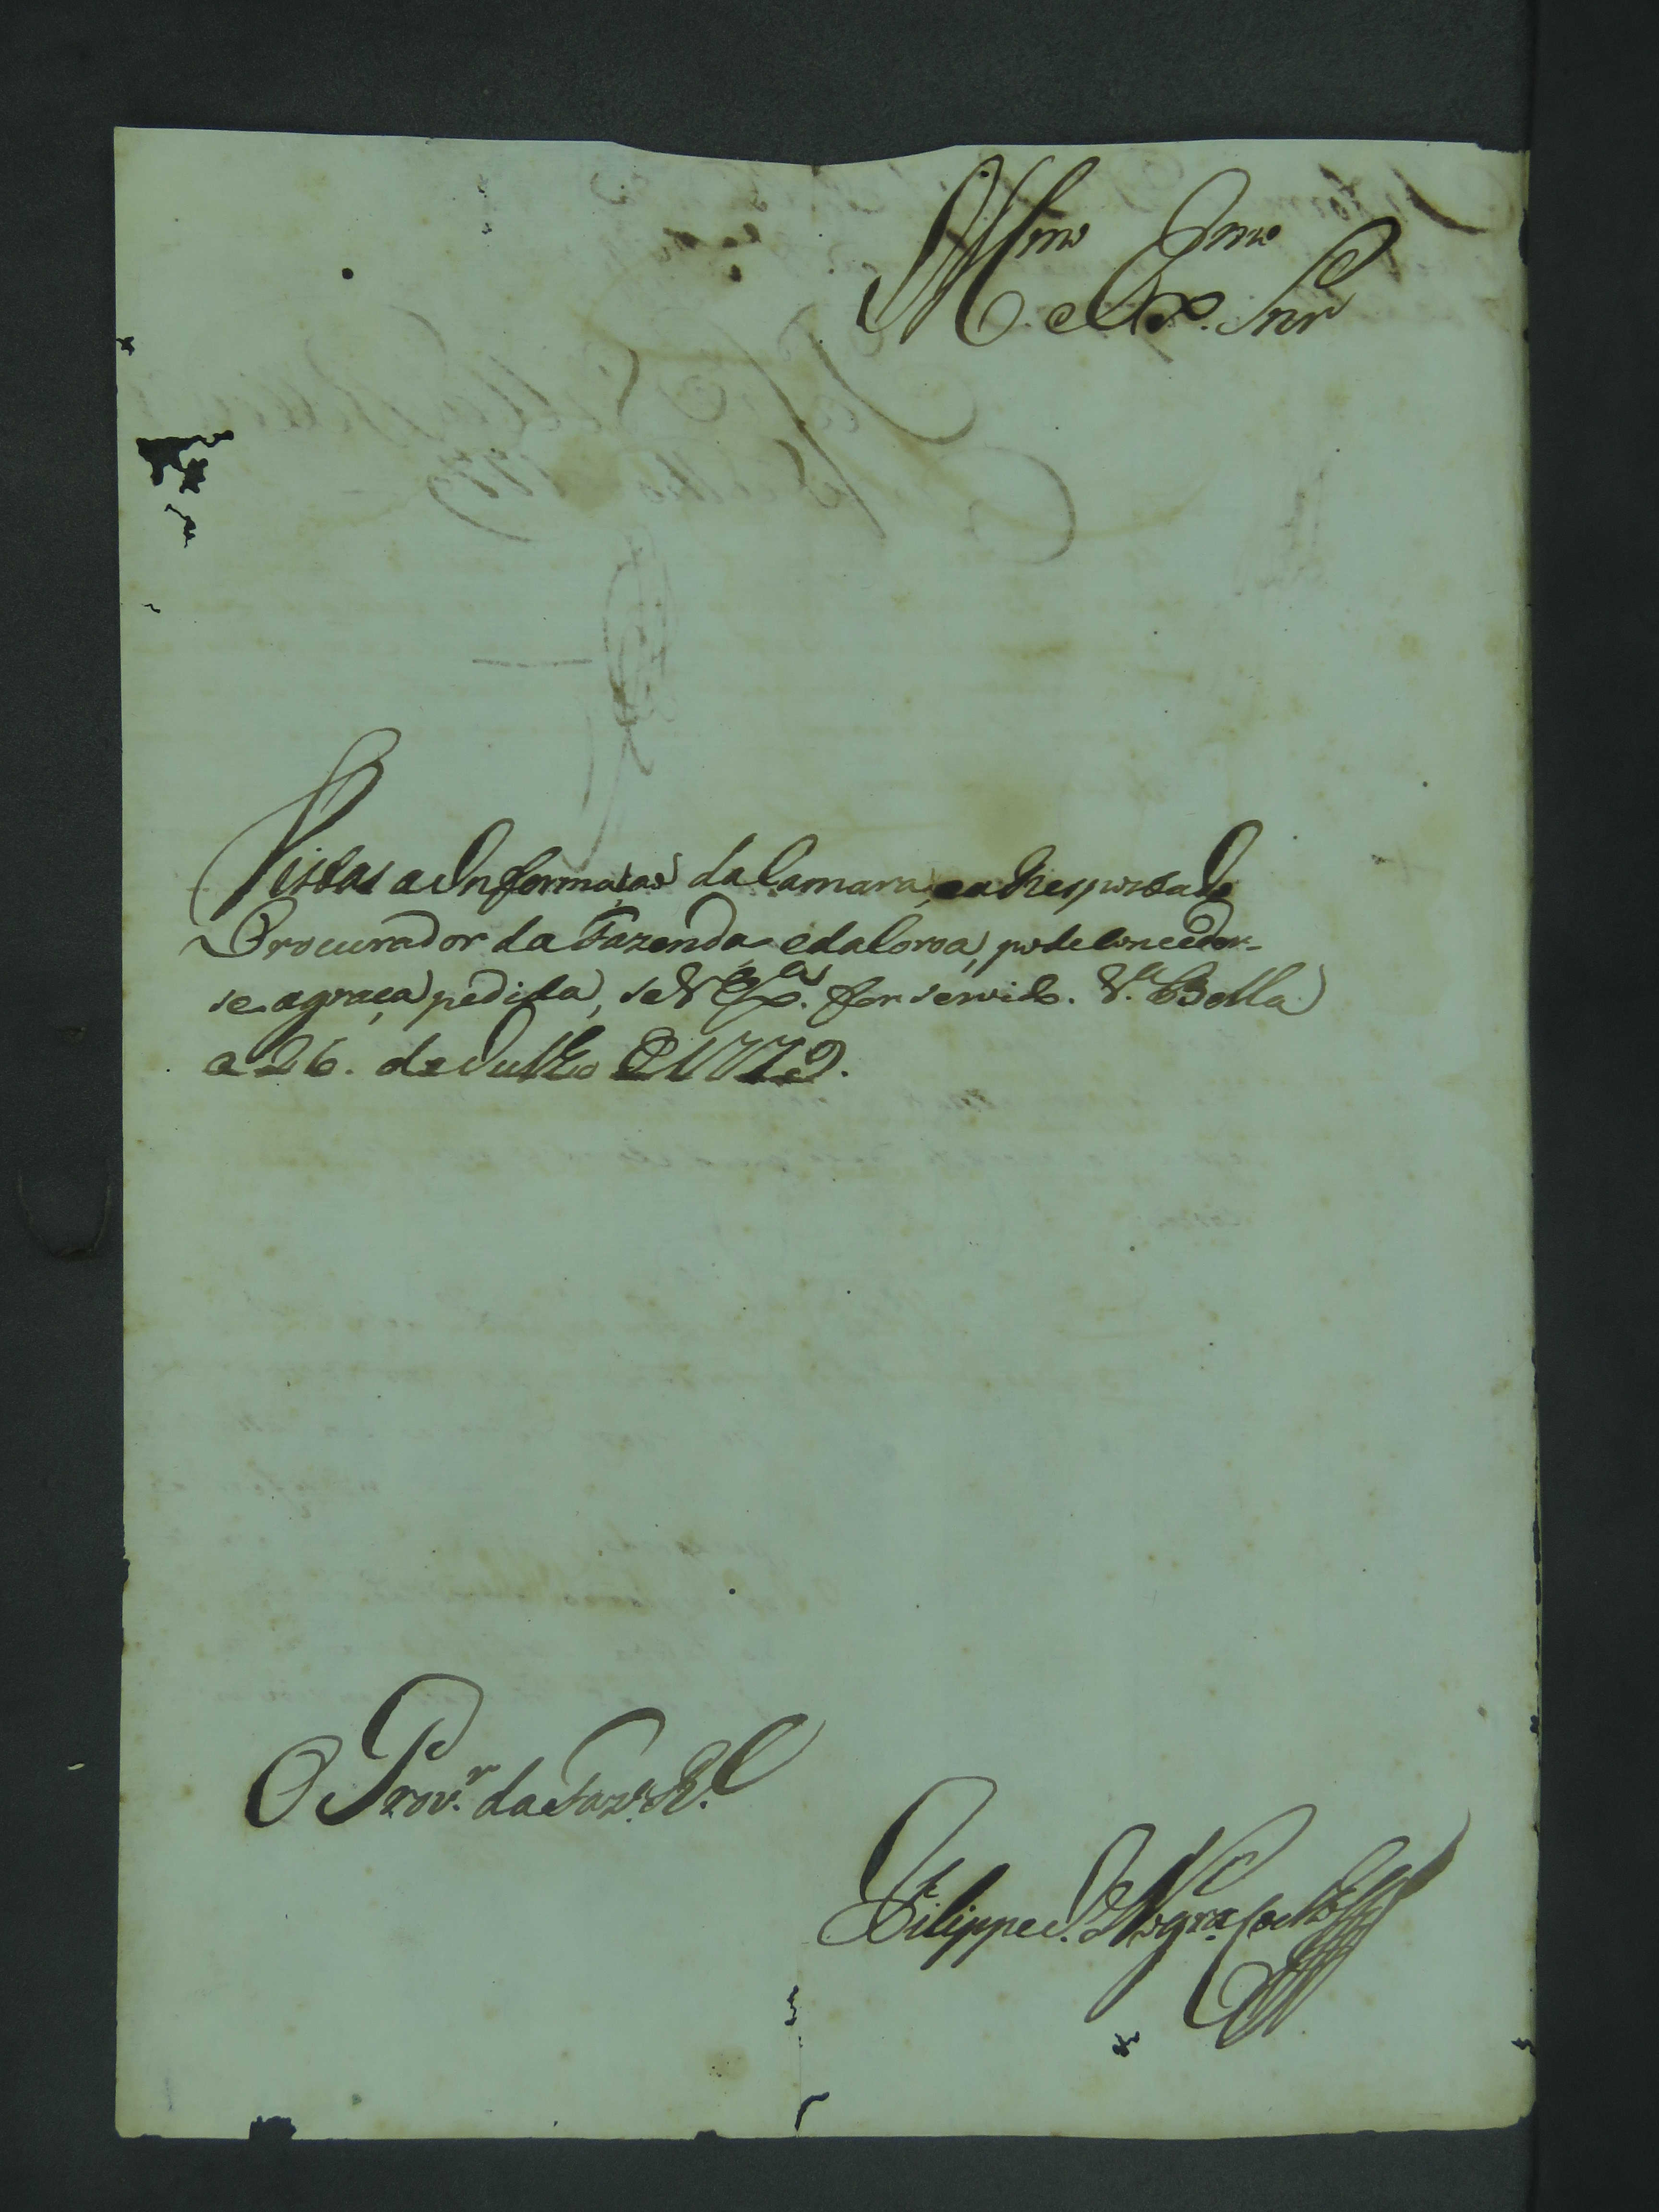 Illmo Exmo
e Ex. Snr
Vistas a Informaçao da Camara, ea Resposta do
Procurador da Fazenda, eda Coroa, pode conceder-
se agraça pedida, se V. Exa. for servido. Va. Bella
a 26. de Julho de 1779.
O Provr. da Faza. Rl.
Filippe J. Nogra. Coelho